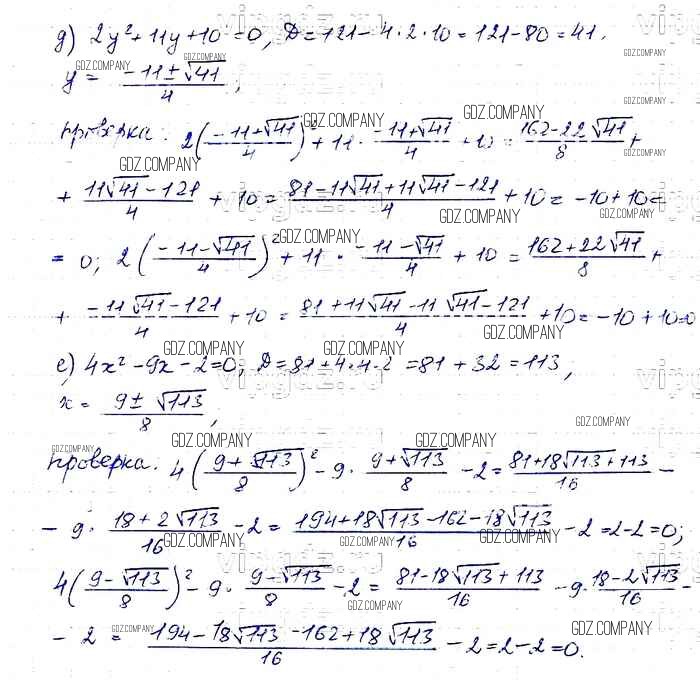 д) 2y² + 11y + 10 = 0, D = 121 - 4·2·10 = 121 - 80 = 41.
y = (-11 ± √41)/4;
Проверка: 2((-11+√41)/4)² + 11 · (-11+√41)/4 + 10 = (162-22√41)/8 +
+ (11√41 - 121)/4 + 10 = (81 - 11√41 + 11√41 - 121)/4 + 10 = -10 + 10 =
= 0; 2((-11-√41)/4)² + 11 · (-11-√41)/4 + 10 = (162+22√41)/8 +
+ (-11√41 - 121)/4 + 10 = (81 + 11√41 - 11√41 - 121)/4 + 10 = -10 + 10 = 0
е) 4x² - 9x - 2 = 0, D = 81 + 4·4·2 = 81 + 32 = 113,
x = (9 ± √113)/8;
Проверка: 4((9+√113)/8)² - 9 · (9+√113)/8 - 2 = (81+18√113+113)/16 -
- 9 · (18+2√113)/16 - 2 = (194+18√113-162-18√113)/16 - 2 = 2-2 = 0;
4((9-√113)/8)² - 9 · (9-√113)/8 - 2 = (81-18√113+113)/16 - 9 · (18-2√113)/16 -
- 2 = (194-18√113-162+18√113)/16 - 2 = 2-2 = 0.
GDZ.COMPANY
vipgdz.ru